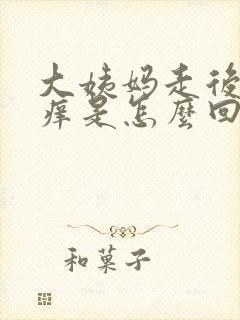 大姨妈走後
痒是怎麼回
和菓子